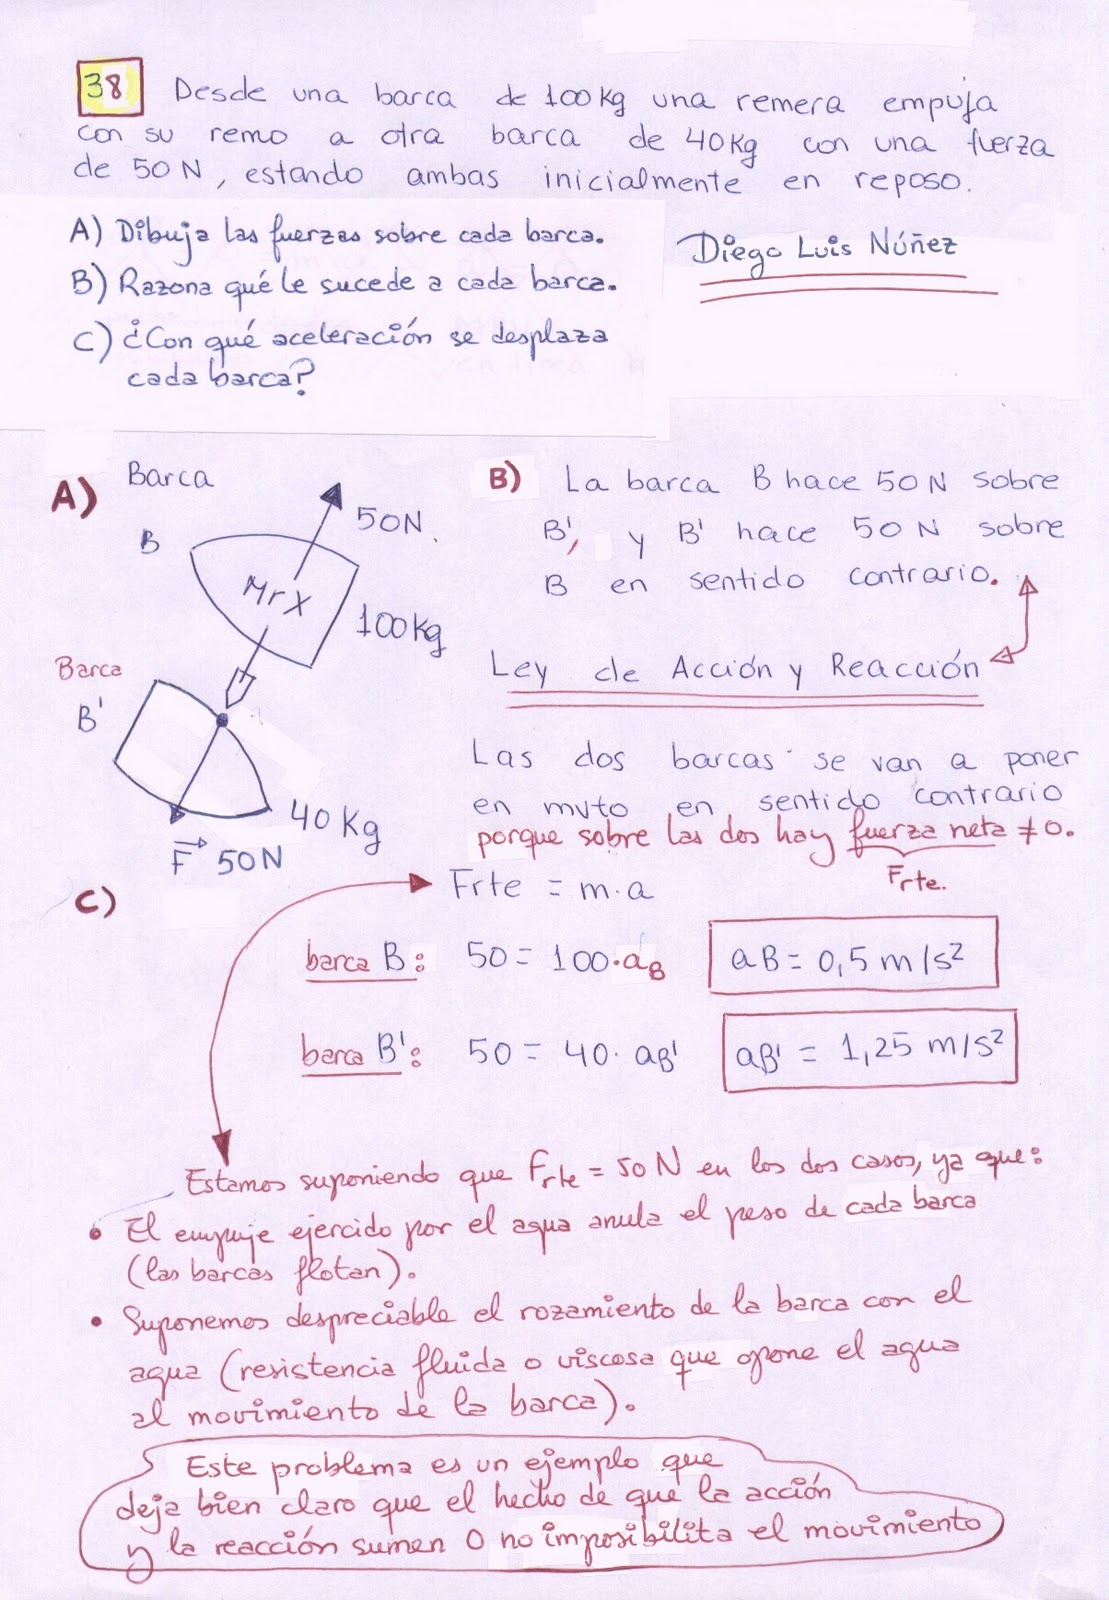 38 Desde una barca de 100 kg una remera empuja
con su remo a otra barca de 40 Kg con una fuerza
de 50 N, estando ambas inicialmente en reposo.
A) Dibuja las fuerzas sobre cada barca.
Diego Luis Núñez
B) Razona qué le sucede a cada barca.
C) ¿Con qué aceleración se desplaza
cada barca?
A) Barca
B
50N.
Mr X
100 kg
Barca
B'
40 Kg
F 50N
B) La barca B hace 50 N sobre
B', y B' hace 50 N sobre
B en sentido contrario.
Ley de Acción y Reacción
Las dos barcas se van a poner
en mvto en sentido contrario
porque sobre las dos hay fuerza neta ≠ 0.
Frte.
C)
Frte = m·a
barca B: 50 = 100·aB
aB = 0,5 m/s²
barca B': 50 = 40· aB'
aB' = 1,25 m/s²
Estamos suponiendo que Frte = 50 N en los dos casos, ya que:
• El empuje ejercido por el agua anula el peso de cada barca
(las barcas flotan).
• Suponemos despreciable el rozamiento de la barca con el
agua (resistencia fluida o viscosa que opone el agua
al movimiento de la barca).
Este problema es un ejemplo que
deja bien claro que el hecho de que la acción
y la reacción sumen 0 no imposibilita el movimiento